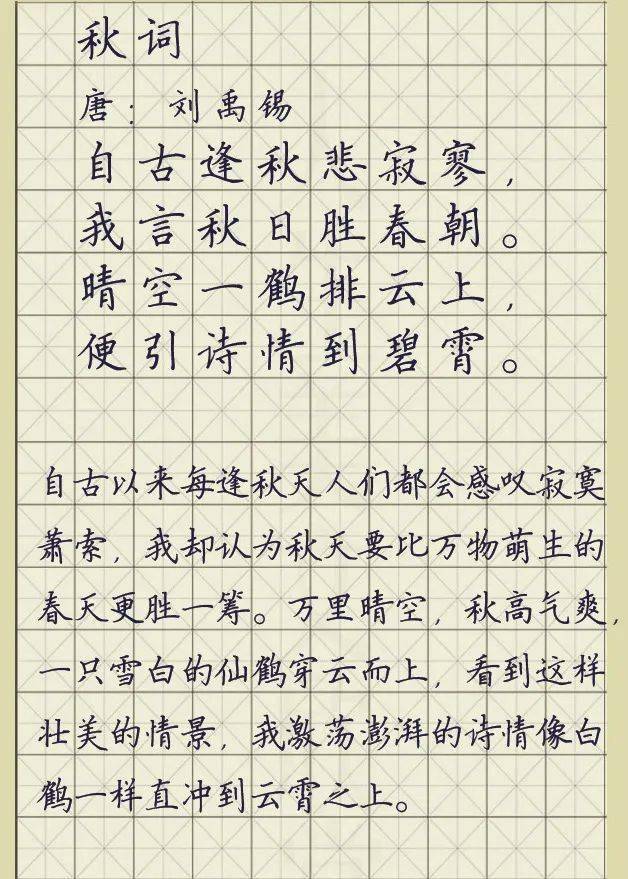 秋词
唐：刘禹锡
自古逢秋悲寂寥，
我言秋日胜春朝。
晴空一鹤排云上，
便引诗情到碧霄。
自古以来每逢秋天人们都会感叹寂寞
萧索，我却认为秋天要比万物萌生的
春天更胜一筹。万里晴空，秋高气爽，
一只雪白的仙鹤穿云而上，看到这样
壮美的情景，我激荡澎湃的诗情像白
鹤一样直冲到云霄之上。